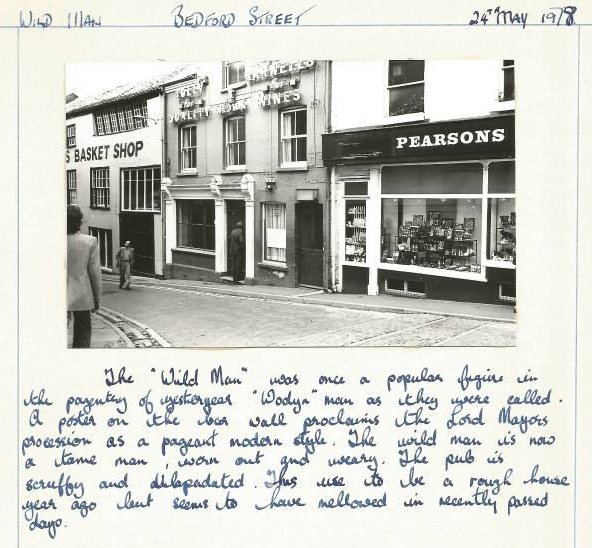 WILD MAN BEDFORD STREET 24TH MAY 1978
S BASKET SHOP
QUALITY WINES
PEARSONS
The "Wild Man" was once a popular figire in
the pagentry of yesteryear "Wodyn" man as they were called.
A poster on the bar wall proclaims the Lord Mayors
procession as a pageant modern style. The wild man is now
a tame man, worn out and weary. The pub is
scruffy and dilapadated. This use to be a rough house
year ago but seems to have mellowed in recently passed
days.